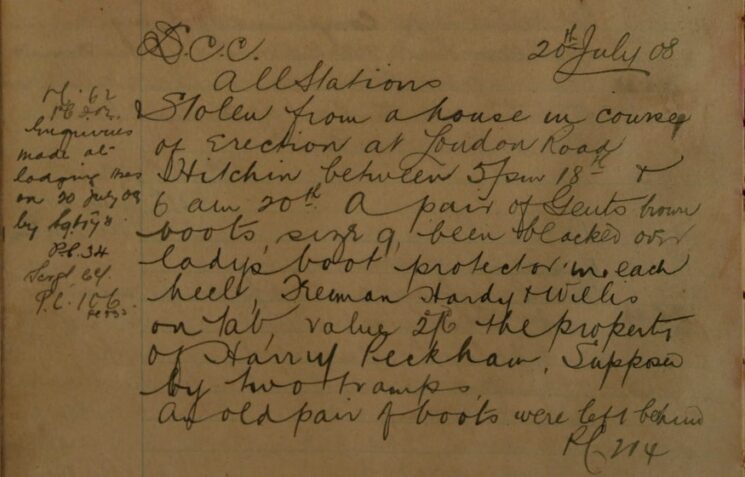 S.C.C. 20th July 08
All Stations
Stolen from a house in course
of Erection at London Road
Hitchin between 5 pm 18th &
6 am 20th. A pair of Gents brown
boots, size 9, been blacked over
lady's boot protector in each
heel, Freeman Hardy & Willis
on tab, value 2/6 the property
of Harry Peckham, Supposed
by two tramps,
An old pair of boots were left behind
P.C. 214
P.C. 62
Enquiries
made at
lodging
on 20 July 08
by Sgt
P.C. 34
Sergt. 64.
P.C. 106